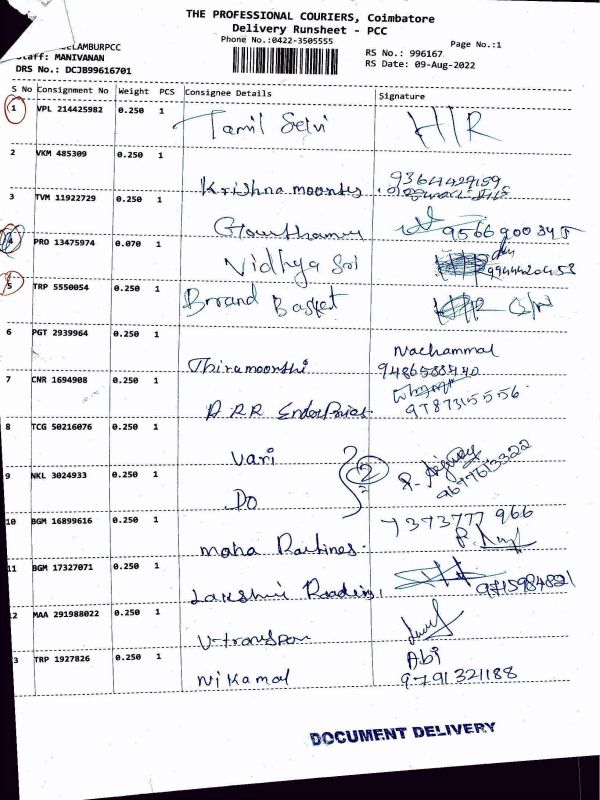 THE PROFESSIONAL COURIERS, Coimbatore
Delivery Runsheet - PCC
Phone No.:0422-3505555
Page No.:1
ELAMBURPCC
Staff: MANIVANAN
RS No.: 996167
DRS No.: DCJB99616701
RS Date: 09-Aug-2022
S No Consignment No Weight PCS Consignee Details Signature
1 VPL 214425982 0.250 1 Tamil Selvi H/R
2 VKM 485309 0.250 1 Krishna moorthy 9364429159
3 TVM 11922729 0.250 1 Gowthamy
4 PRO 13475974 0.070 1 Vidhya Sri 9944420458
5 TRP 5550054 0.250 1 Brrand Basket
6 PGT 2939964 0.250 1 Thiramoorthi Nachammal
7 CNR 1694908 0.250 1 A RR Enterprises
8 TCG 50216076 0.250 1 Vari
9 NKL 3024933 0.250 1 Do 2
10 BGM 16899616 0.250 1 Maha 7373777 966
11 BGM 17327071 0.250 1 Lakshmi 9715984821
2 MAA 291988022 0.250 1 V-transpor
3 TRP 1927826 0.250 1 Nikamal Abi
9791321188
DOCUMENT DELIVERY